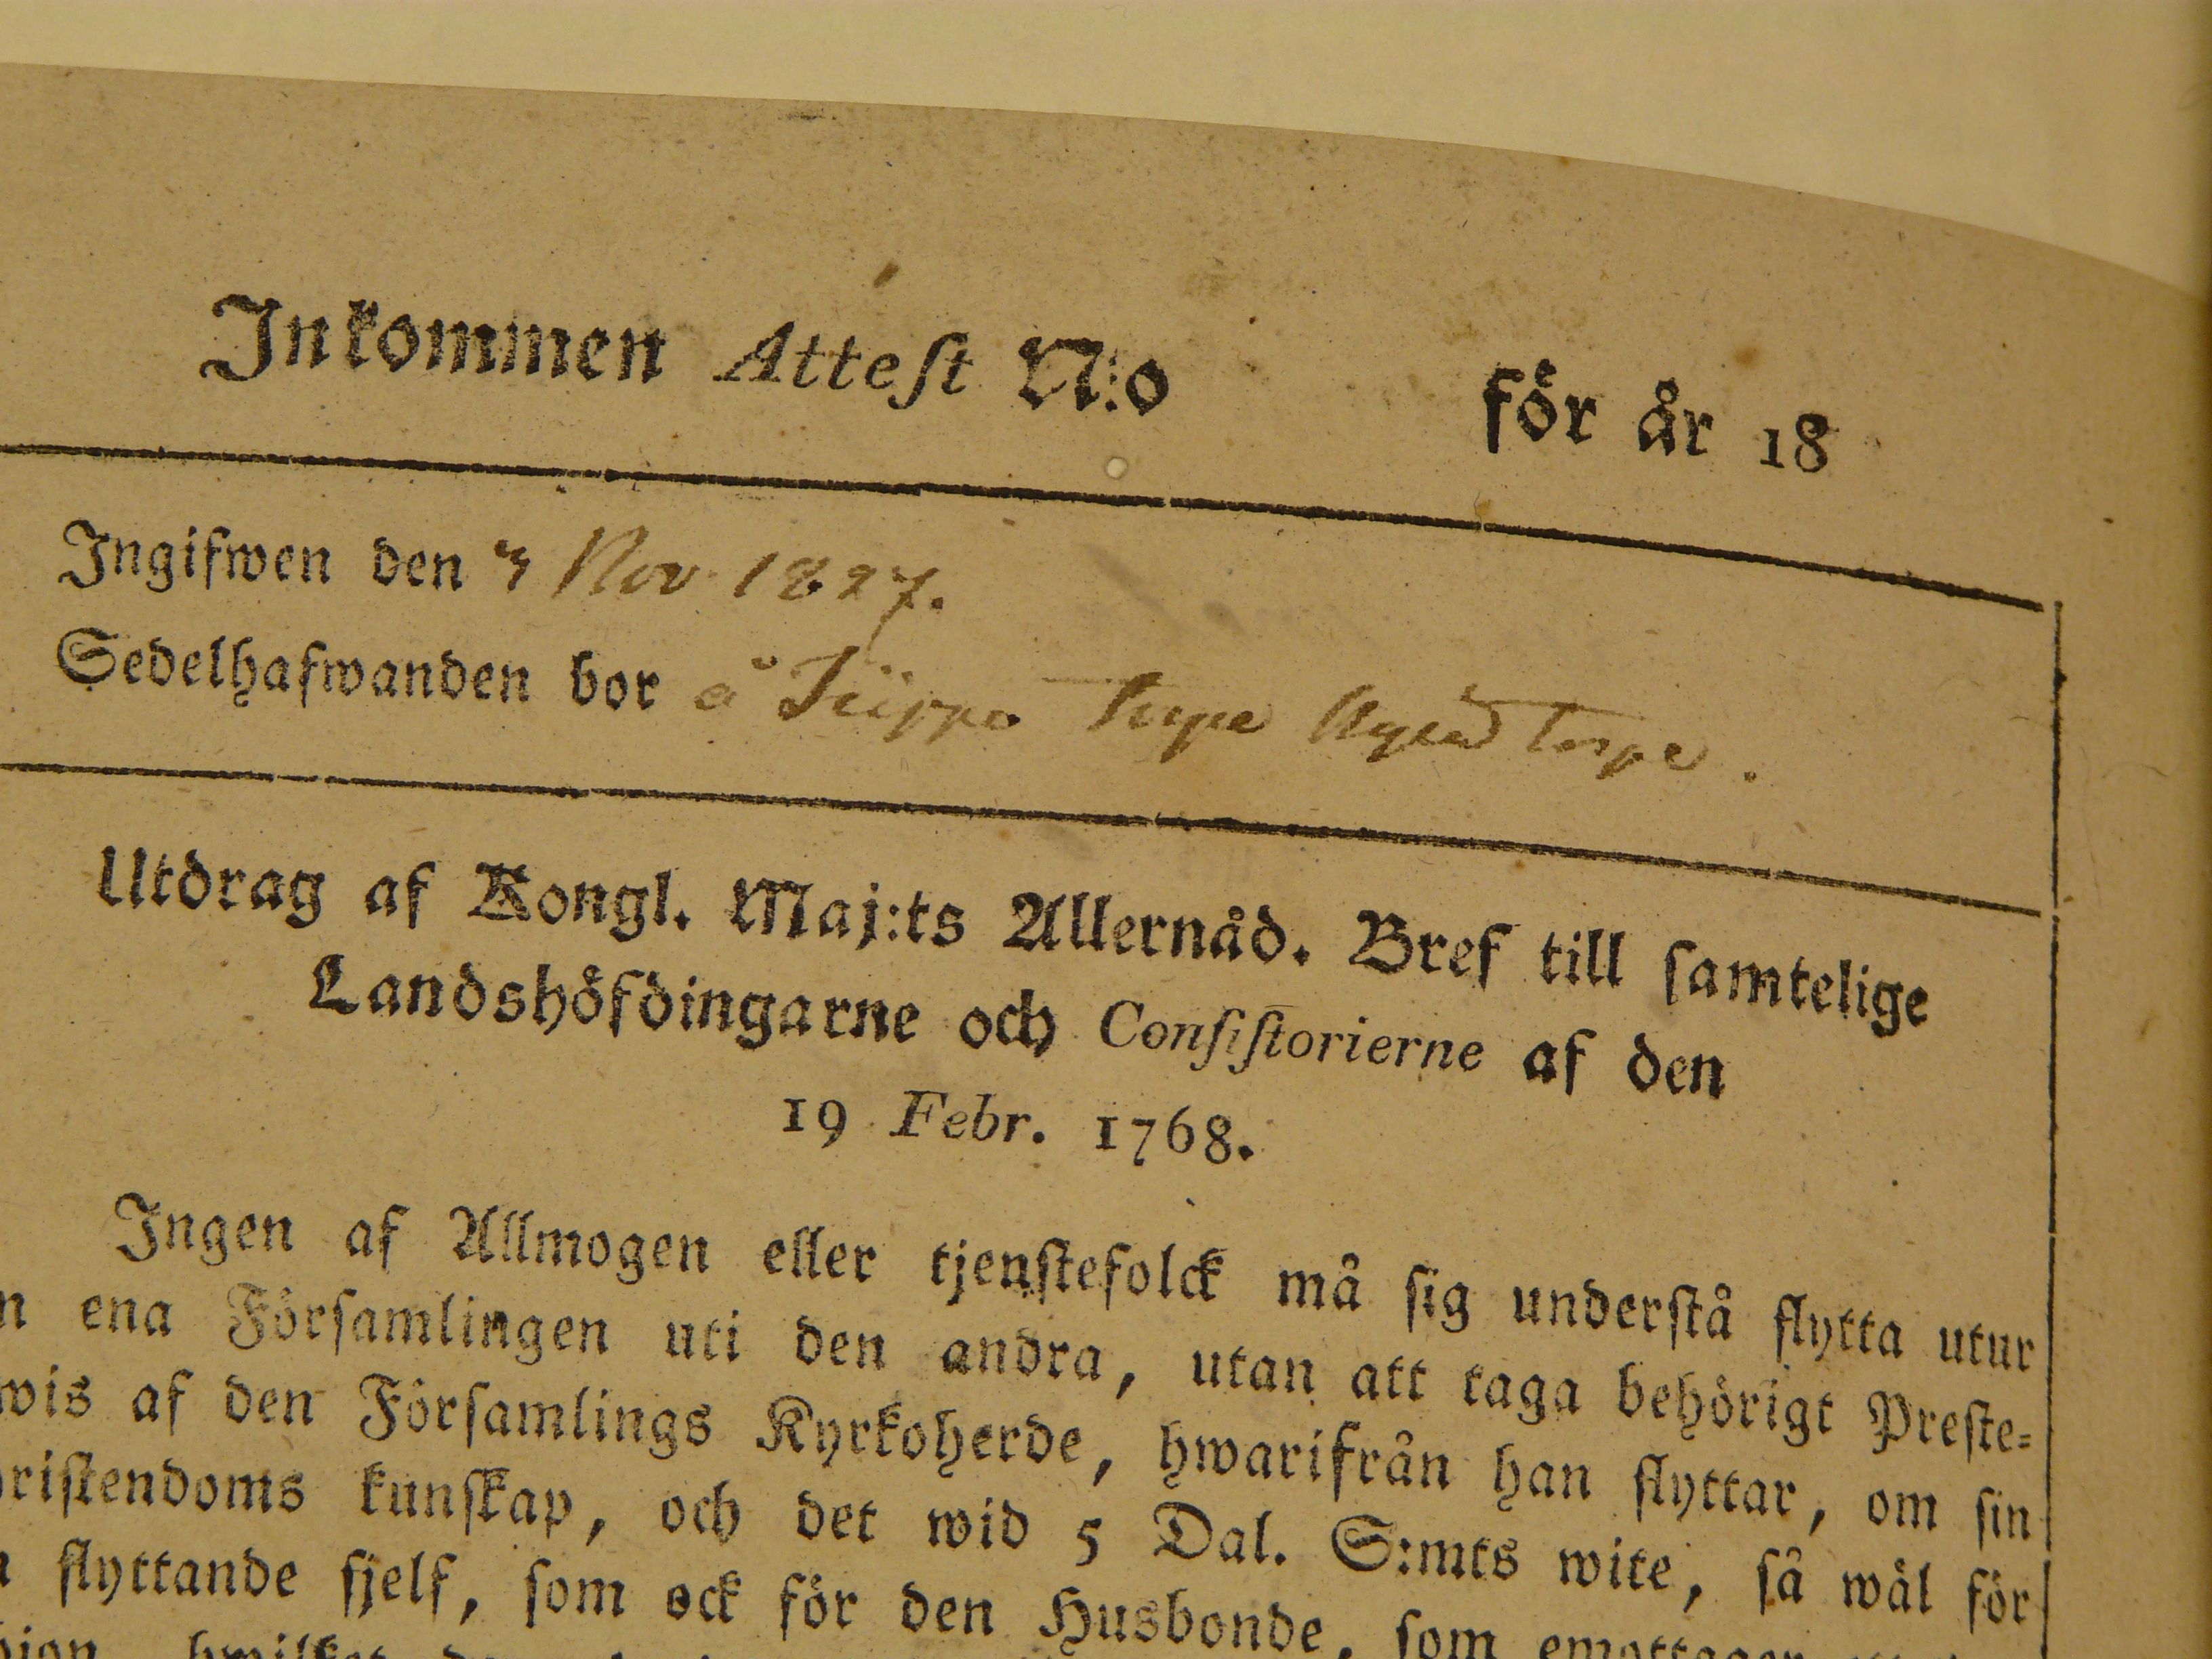 Inkommen Attest N:o för år 18
Ingifwen den 3 Nov 1827.
Sedelhafwanden bor å
Utdrag af Kongl. Maj:ts Allernåd. Bref till samtelige
Landshöfdingarne och Consistorierne af den
19 Febr. 1768.
Ingen af Allmogen eller tjenstefolck må sig understå flytta utur
ena Församlingen uti den andra, utan att taga behörigt Preste=
wis af den Församlings Kyrkoherde, hwarifrån han flyttar, om sin
ristendoms kunskap, och det wid 5 Dal. S:mts wite, så wäl för
flyttande sjelf, som ock för den Husbonde, som emottager
hwilket